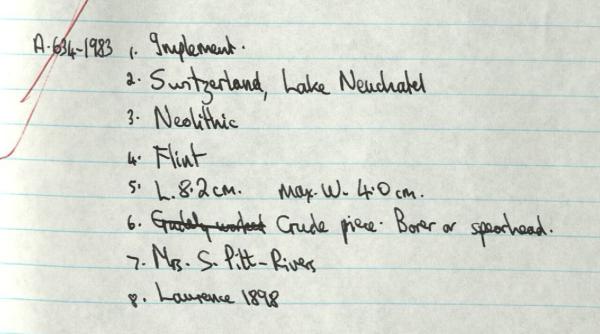 A.634-1983 1. Implement.
2. Switzerland, Lake Neuchatel
3. Neolithic
4. Flint
5. L. 8.2cm. Max. W. 4.0 cm.
6. Crudely worked Crude piece. Borer or spearhead.
7. Mrs. S. Pitt-Rivers
8. Lawrence 1898